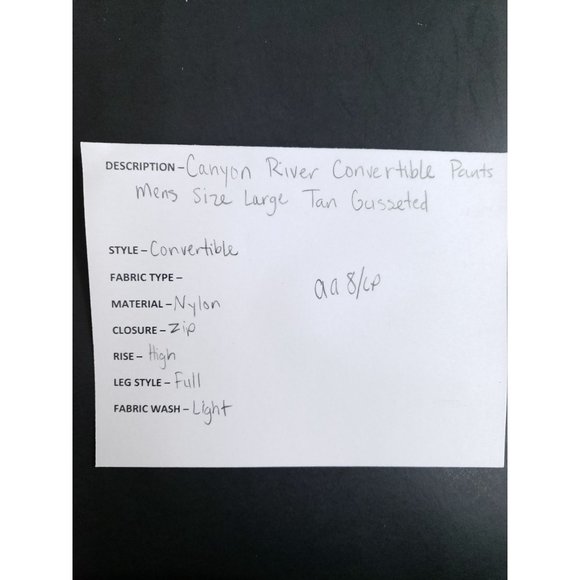 DESCRIPTION - Canyon River Convertible Pants
Mens Size Large Tan Gusseted
STYLE - Convertible
FABRIC TYPE -
MATERIAL - Nylon
CLOSURE - Zip
RISE - High
LEG STYLE - Full
FABRIC WASH - Light
aa8/cp